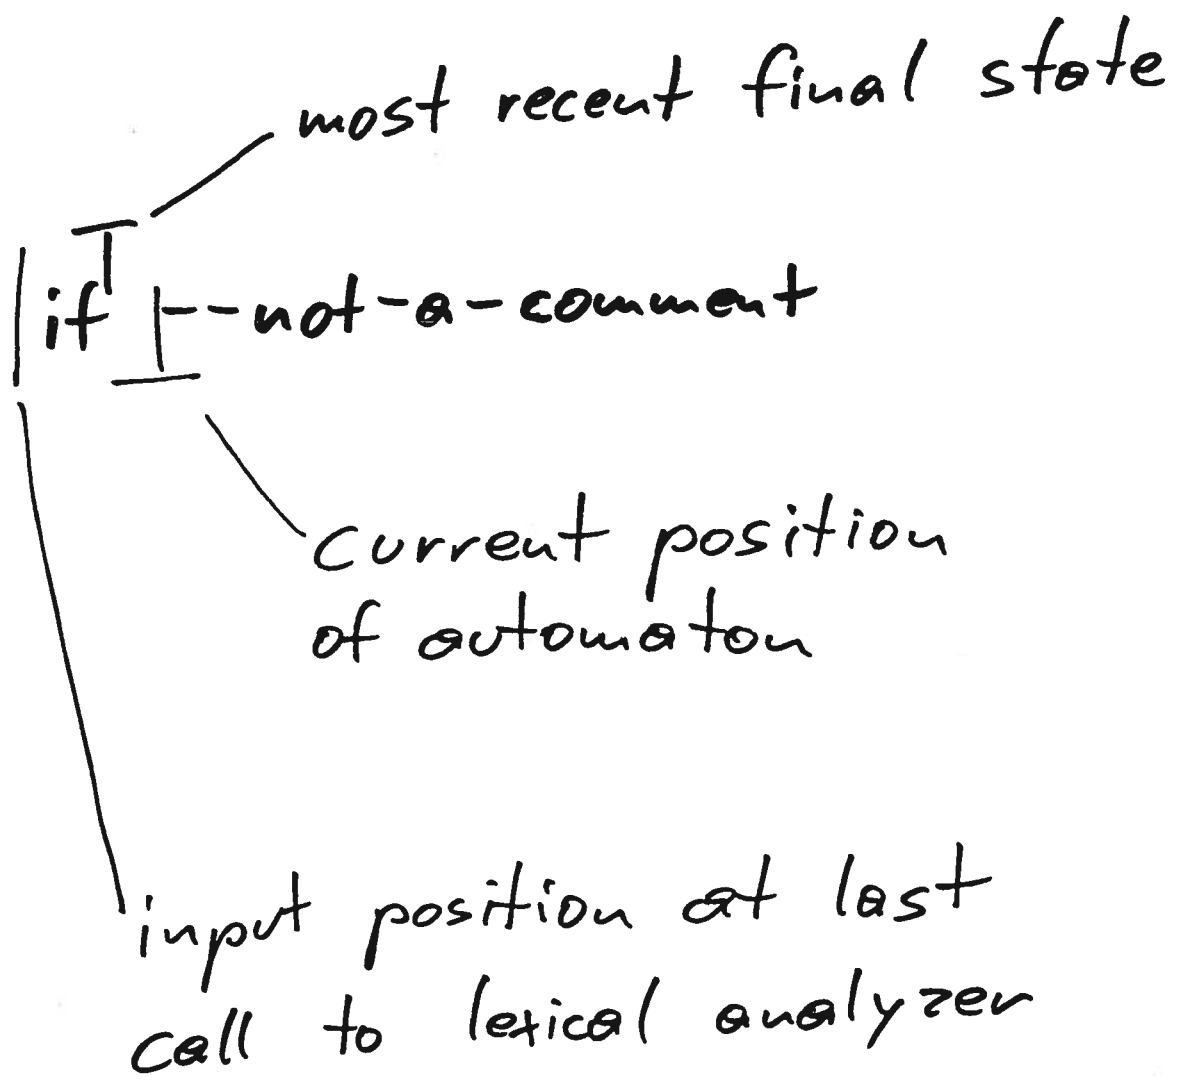 most recent final state
if --not-a-comment
current position
of automaton
input position at last
call to lexical analyzer